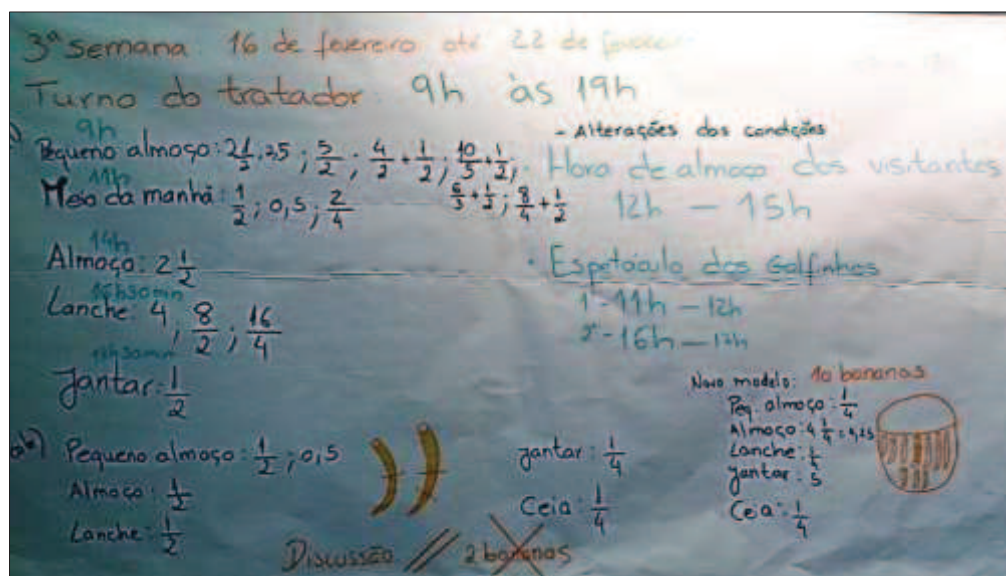 3ª semana: 16 de fevereiro até 22 de
Turno do tratador: 9h às 19h
9h
Pequeno almoço: 2 1/2, 2,5 ; 5/2 ; 4/2 + 1/2 ; 10/5 + 1/2 ;
6/3 + 1/2 ; 8/4 + 1/2
11h
Meio da manhã: 1/2 ; 0,5 ; 2/4
14h
Almoço: 2 1/2
16h30min
Lanche: 4, 8/2 ; 16/4
Jantar: 1/2
- Alterações das condições
· Hora de almoço dos visitantes
12h — 15h
· Espetáculo dos Golfinhos
1º - 11h — 12h
2º - 16h — 17h
Pequeno almoço: 1/2 ; 0,5
Almoço: 1/2
Lanche: 1/2
Jantar: 1/4
Ceia: 1/4
Novo modelo: 10 bananas
Peq. almoço: 1/4
Almoço: 4 1/4 = 4,25
Lanche:
Jantar: 5
Ceia: 1/4
Discussão // 2 bananas